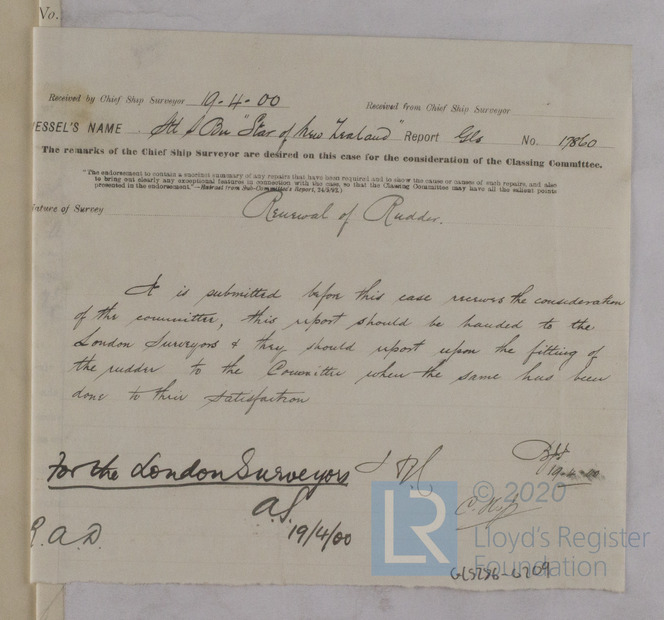 No.
Received by Chief Ship Surveyor 19-4-00 Received from Chief Ship Surveyor
ESSEL'S NAME Stl S Bn "Star of New Zealand" Report Gls No. 17860
The remarks of the Chief Ship Surveyor are desired on this case for the consideration of the Classing Committee.
"The endorsement to contain a succinct summary of any repairs that have been required and to show the cause or causes of such repairs, and also
to bring out clearly any exceptional features in connection with the case, so that the Classing Committee may have all the salient points
presented in the endorsement."—Extract from Sub-Committee's Report,
ature of Survey Renewal of Rudder.
It is submitted before this case receives the consideration
of the committee, this report should be handed to the
London Surveyors & they should report upon the fitting of
the rudder to the Committee when the same has been
done to their satisfaction
For the London Surveyors
19-4-00
A.S.
19/4/00
R.A.D
LR
© 2020
Lloyd's Register
Foundation
GLS286-0209